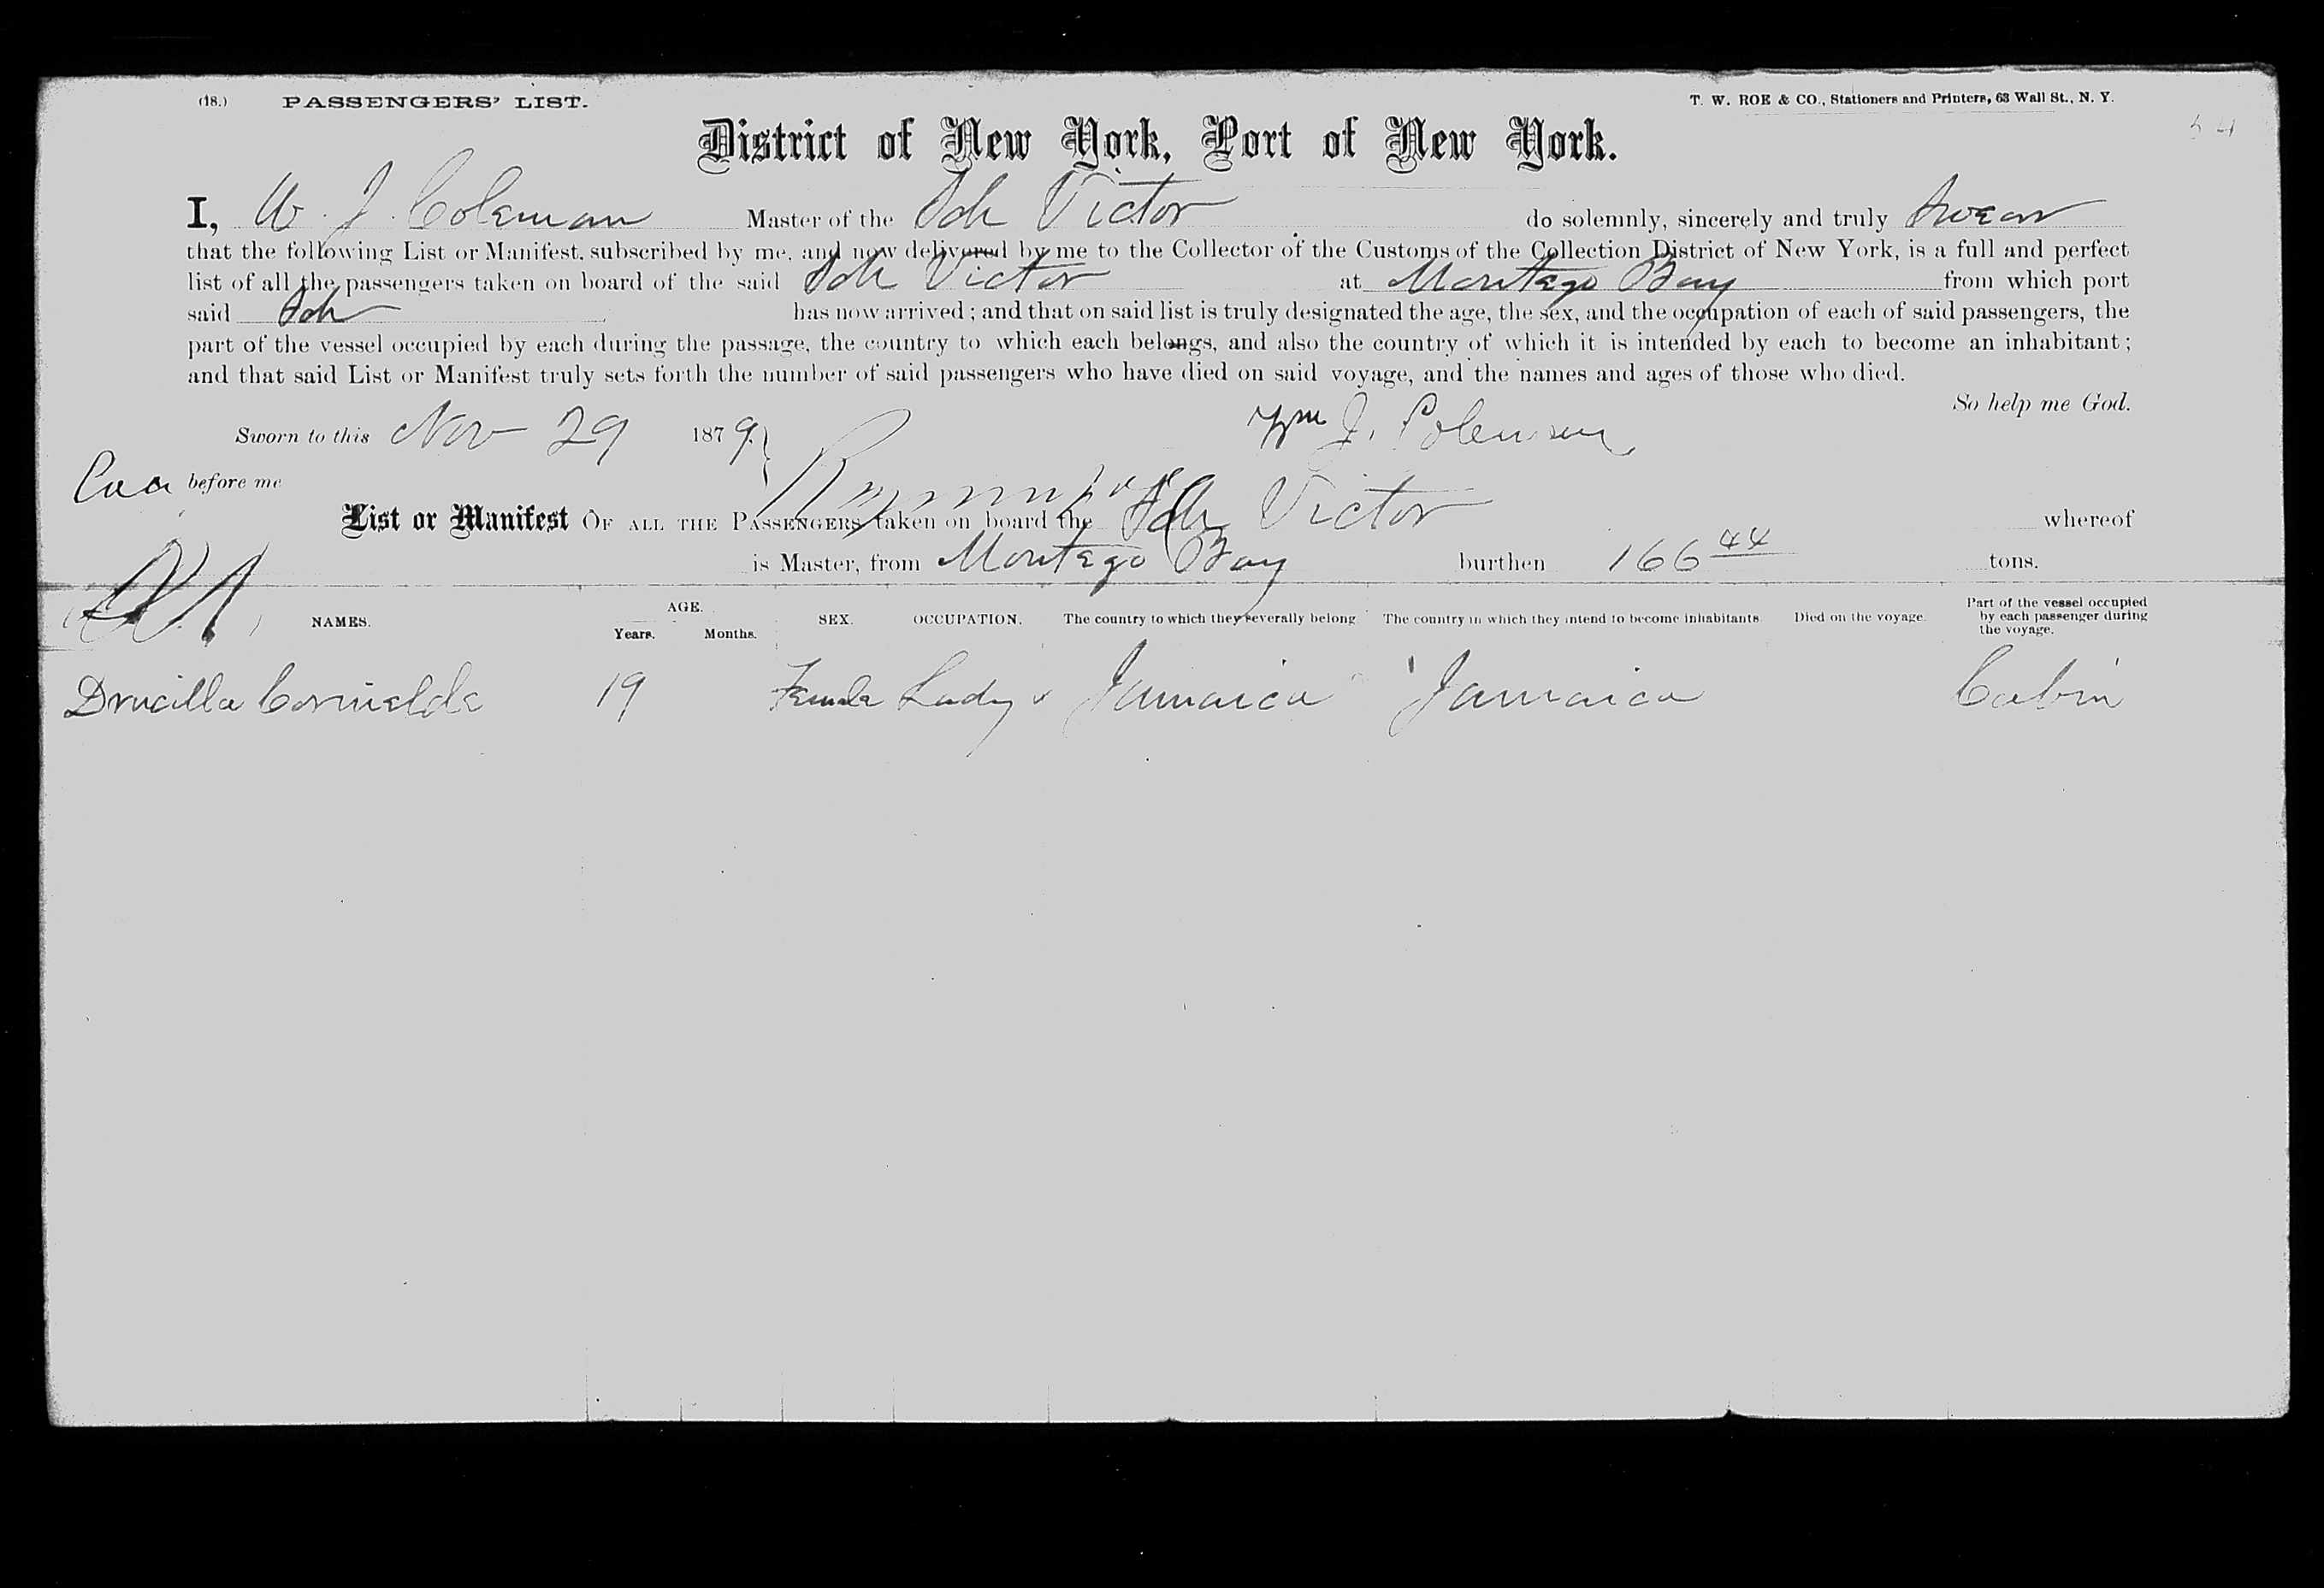 (18.) PASSENGERS' LIST. T. W. ROE & CO., Stationers and Printers, 63 Wall St., N. Y.
54
District of New York, Port of New York.
I, W. J. Coleman Master of the Sch Victor do solemnly, sincerely and truly swear
that the following List or Manifest, subscribed by me, and now delivered by me to the Collector of the Customs of the Collection District of New York, is a full and perfect
list of all the passengers taken on board of the said Sch Victor at Montego Bay from which port
said Sch has now arrived; and that on said list is truly designated the age, the sex, and the occupation of each of said passengers, the
part of the vessel occupied by each during the passage, the country to which each belongs, and also the country of which it is intended by each to become an inhabitant;
and that said List or Manifest truly sets forth the number of said passengers who have died on said voyage, and the names and ages of those who died.
So help me God.
Sworn to this Nov 29 1879. Wm J. Coleman
before me
List or Manifest OF ALL THE PASSENGERS taken on board the Sch Victor whereof
is Master, from Montego Bay burthen 166 44 tons.
NAMES. AGE. Years. Months. SEX. OCCUPATION. The country to which they severally belong The country in which they intend to become inhabitants. Died on the voyage. Part of the vessel occupied by each passenger during the voyage.
Drucilla 19 Female Lady Jamaica Jamaica Cabin